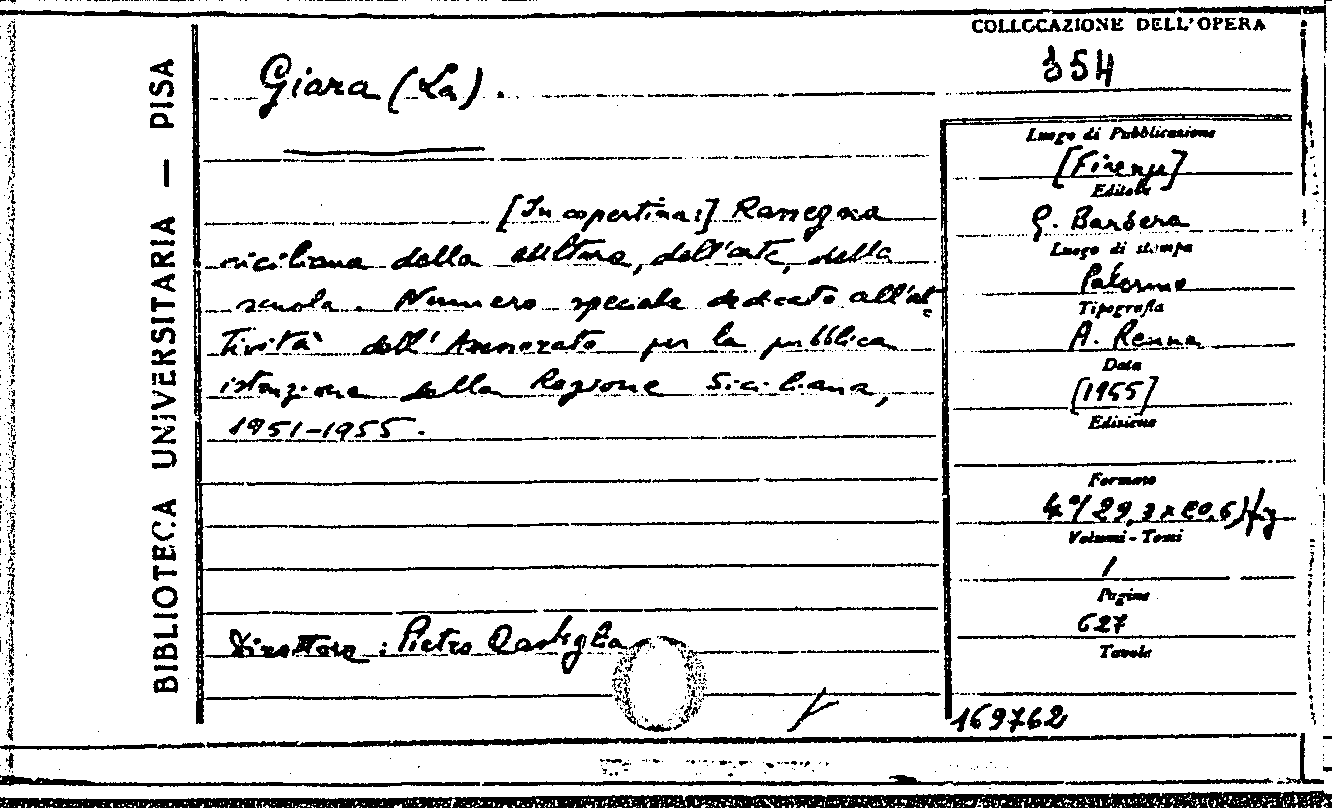 BIBLIOTECA UNIVERSITARIA — PISA
COLLOCAZIONE DELL'OPERA
354
Giara (La).
[In copertina:] Rassegna
siciliana della cultura, dell'arte, della
scuola. Numero speciale dedicato all'at
tività dell'Assessorato per la pubblica
istruzione della Regione Siciliana,
1951-1955.
Direttore: Pietro Castiglia
Luogo di Pubblicazione
[Firenze]
Editore
G. Barbera
Luogo di stampa
Palermo
Tipografia
A. Renna
Data
[1955]
Edizione
Formato
4°/29,3x20,6)fig
Volumi - Tomi
1
Pagine
627
Tavole
169762